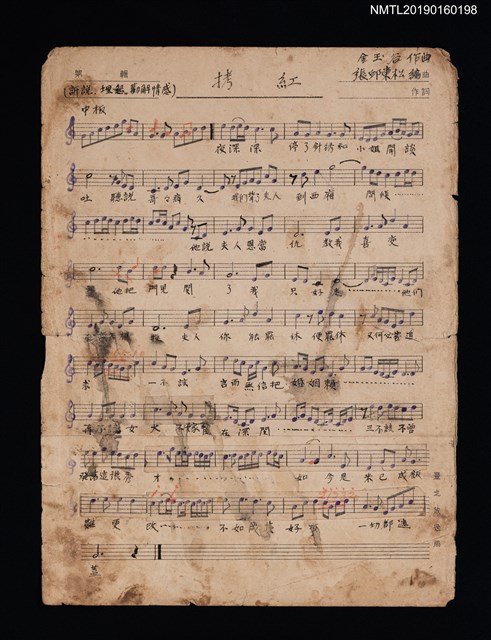 NMTL20190160198
金玉谷 作曲
第 輯
拷 紅
張邱東松 編曲
作詞
(訴說、埋怨、勸解情感)
中板
夜深深 停了針綉和 小姐閒談
吐 聽說 哥々病久 我們背了夫人 到西廂 問候
他說夫人恩當 仇 教我 喜變
他把門兒関 了 我 只好 他們
夫人 你能罷 休 便罷休 又何必苦追
求 一不該 言而無信把 婚姻賴
女 大 不 在深閨 三不該不曾
才 如今是 米已成飯
難更改 不如 好事 一切都進
蓋
臺北放送局